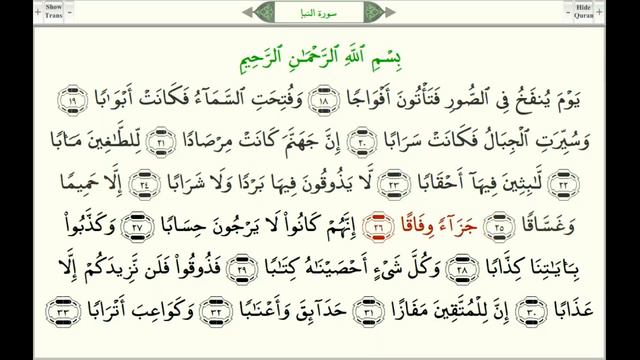 Show
Trans
سورة النبإ
Hide
Quran
بِسْمِ ٱللَّهِ ٱلرَّحْمَـٰنِ ٱلرَّحِيمِ
يَوْمَ يُنفَخُ فِى ٱلصُّورِ فَتَأْتُونَ أَفْوَاجًا ١٨ وَفُتِحَتِ ٱلسَّمَآءُ فَكَانَتْ أَبْوَٰبًا ١٩
وَسُيِّرَتِ ٱلْجِبَالُ فَكَانَتْ سَرَابًا ٢٠ إِنَّ جَهَنَّمَ كَانَتْ مِرْصَادًا ٢١ لِّلطَّـٰغِينَ مَـَٔابًا
٢٢ لَّـٰبِثِينَ فِيهَآ أَحْقَابًا ٢٣ لَّا يَذُوقُونَ فِيهَا بَرْدًا وَلَا شَرَابًا ٢٤ إِلَّا حَمِيمًا
وَغَسَّاقًا ٢٥ جَزَآءً وِفَاقًا ٢٦ إِنَّهُمْ كَانُوا۟ لَا يَرْجُونَ حِسَابًا ٢٧ وَكَذَّبُوا۟
بِـَٔايَـٰتِنَا كِذَّابًا ٢٨ وَكُلَّ شَىْءٍ أَحْصَيْنَـٰهُ كِتَـٰبًا ٢٩ فَذُوقُوا۟ فَلَن نَّزِيدَكُمْ إِلَّا
عَذَابًا ٣٠ إِنَّ لِلْمُتَّقِينَ مَفَازًا ٣١ حَدَآئِقَ وَأَعْنَـٰبًا ٣٢ وَكَوَاعِبَ أَتْرَابًا ٣٣